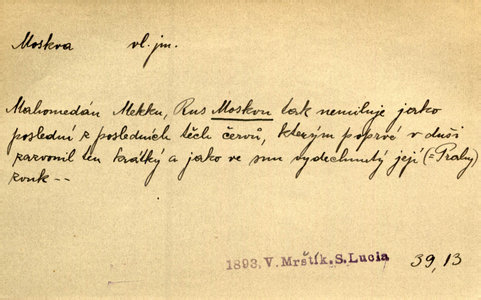 Moskva vl. jm.
Mahomedán Mekku, Rus Moskvu tak nemiluje jako
poslední z posledních těch červů, kterým poprvé v duši
zazvonil ten krátký a jako ve snu vydechnutý její (= Prahy)
zvuk --
1893, V. Mrštík, S. Lucia 39, 13